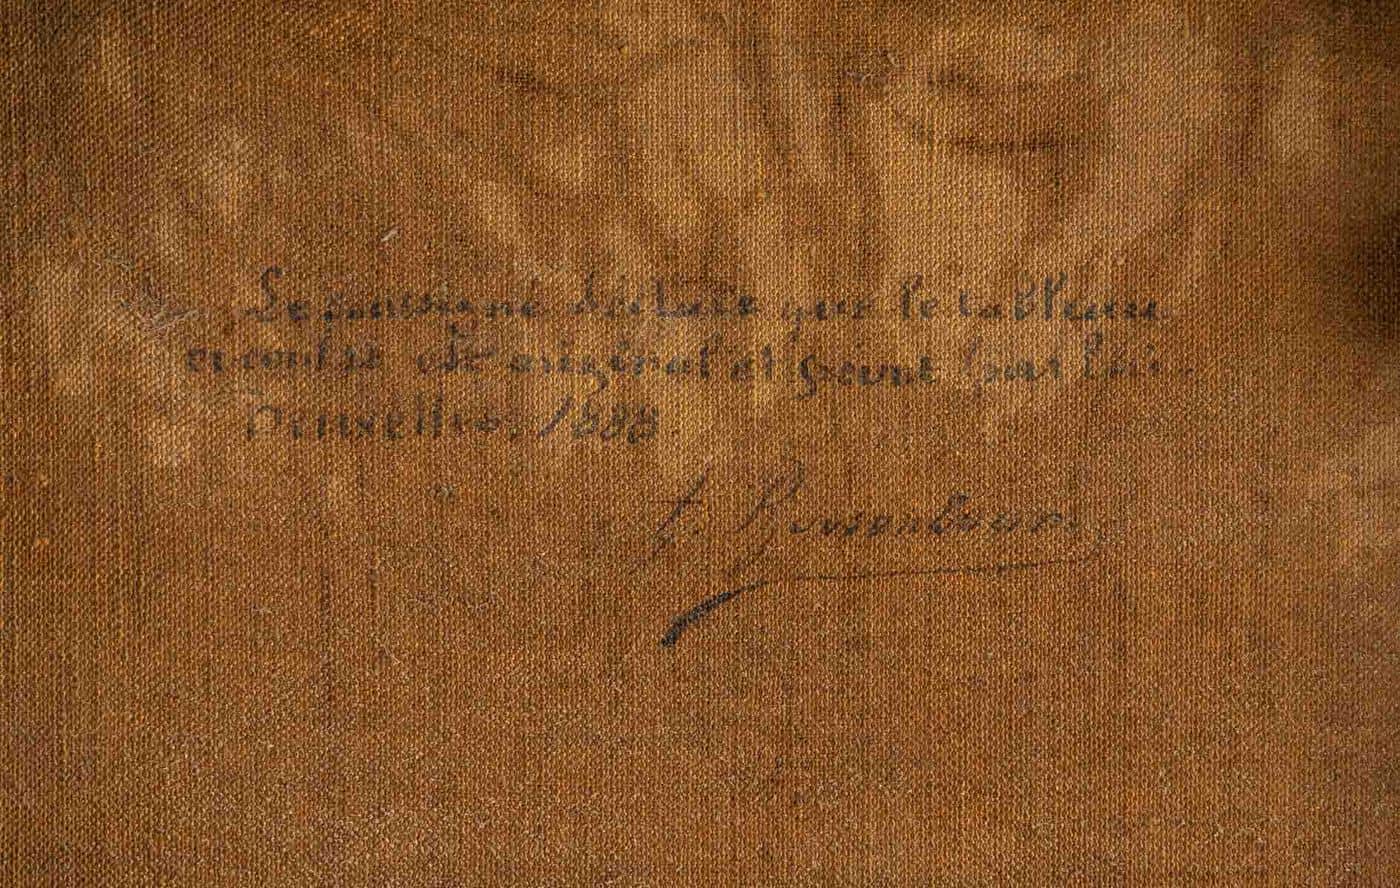 Le soussigné déclare que le tableau
ci contre est original et peint par lui.
Bruxelles, 1888.